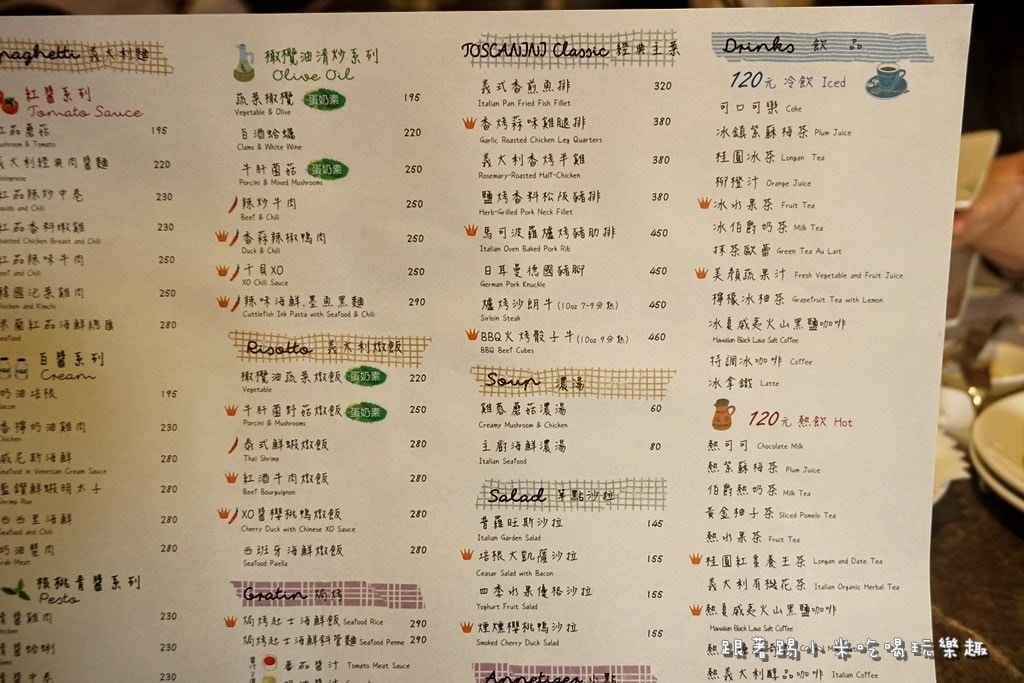 paghetti 義大利麵
紅醬系列
Tomato Sauce
紅茄蘑菇 195
ushroom & Tomato
義大利經典肉醬麵 220
olognese
紅茄辣炒中卷 230
quids and Chili
紅茄香料嫩雞 230
oasted Chicken Breast and Chili
紅茄辣味牛肉 250
eef and Chili
韓國泡菜雞肉 250
hicken and Kimchi
米蘭紅茄海鮮總匯 280
eafood
白醬系列
Cream
奶油培根 195
acon
香檸奶油雞肉 230
hicken
威尼斯海鮮 280
eafood in Venetian Cream Sauce
藍鑽鮮蝦明太子 280
hrimp Roe
西西里海鮮 280
eafood and Chili
奶油蟹肉 280
rab Meat
核桃青醬系列
Pesto
青醬雞肉 230
hicken
青醬蛤蜊 230
青醬中卷 230
橄欖油清炒系列
Olive Oil
蔬菜橄欖 蛋奶素 195
Vegetable & Olive
白酒蛤蠣 220
Clams & White Wine
牛肝菌菇 蛋奶素 250
Porcini & Mixed Mushrooms
辣炒牛肉 250
Beef & Chili
香蒜辣椒鴨肉 250
Duck & Chili
干貝XO 250
XO Chili Sauce
辣味海鮮.墨魚黑麵 290
Cuttlefish Ink Pasta with Seafood & Chili
Risotto 義大利燉飯
橄欖油蔬菜燉飯 蛋奶素 220
Vegetable
牛肝菌野菇燉飯 蛋奶素 250
Porcini & Mushrooms
泰式鮮蝦燉飯 280
Thai Shrimp
紅酒牛肉燉飯 280
Beef Bourguignon
XO醬櫻桃鴨燉飯 280
Cherry Duck with Chinese XO Sauce
西班牙海鮮燉飯 280
Seafood Paella
Gratin 焗烤
焗烤起士海鮮飯 Seafood Rice 290
焗烤起士海鮮斜管麵 Seafood Penne 290
番茄醬汁 Tomato Meat Sauce
TOSCANINI Classic 經典主菜
義式香煎魚排 320
Italian Pan Fried Fish Fillet
香烤蒜味雞腿排 380
Garlic Roasted Chicken Leg Quarters
義大利香烤半雞 380
Rosemary-Roasted Half-Chicken
鹽烤香料松阪豬排 380
Herb-Grilled Pork Neck Fillet
馬可波羅爐烤豬肋排 450
Italian Oven Baked Pork Rib
日耳曼德國豬腳 450
German Pork Knuckle
爐烤沙朗牛(10oz 7-9分熟) 450
Sirloin Steak
BBQ火烤骰子牛(10oz 9分熟) 460
BBQ Beef Cubes
Soup 濃湯
雞蓉蘑菇濃湯 60
Creamy Mushroom & Chicken
主廚海鮮濃湯 80
Italian Seafood
Salad 單點沙拉
普羅旺斯沙拉 145
Italian Garden Salad
培根大凱薩沙拉 155
Ceasar Salad with Bacon
四季水果優格沙拉 155
Yoghurt Fruit Salad
煙燻櫻桃鴨沙拉 155
Smoked Cherry Duck Salad
Appetizer 小點
Drinks 飲 品
120元 冷飲 Iced
可口可樂 Coke
冰鎮紫蘇梅茶 Plum Juice
桂圓冰茶 Longan Tea
柳橙汁 Orange Juice
冰水果茶 Fruit Tea
冰伯爵奶茶 Milk Tea
抹茶歐蕾 Green Tea Au Lait
美顏蔬果汁 Fresh Vegetable and Fruit Juice
檸檬冰柚茶 Grapefruit Tea with Lemon
冰夏威夷火山黑鹽咖啡
Hawaiian Black Lava Salt Coffee
特調冰咖啡 Coffee
冰拿鐵 Latte
120元 熱飲 Hot
熱可可 Chocolate Milk
熱紫蘇梅茶 Plum Juice
伯爵熱奶茶 Milk Tea
黃金柚子茶 Sliced Pomelo Tea
熱水果茶 Fruit Tea
桂圓紅棗養生茶 Longan and Date Tea
義大利有機花茶 Italian Organic Herbal Tea
熱夏威夷火山黑鹽咖啡
Hawaiian Black Lava Salt Coffee
熱義大利醇品咖啡 Italian Coffee
跟著踢小米吃喝玩樂趣